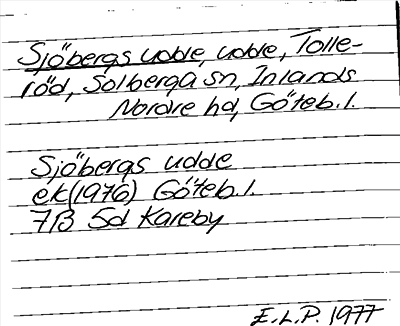 Sjöbergs udde, udde, Tolle-
röd, Solberga sn, Inlands
Nordre hd, Göteb. l.
Sjöbergs udde
ek(1976) Göteb. l.
7B 5d Kareby
E.L.P. 1977